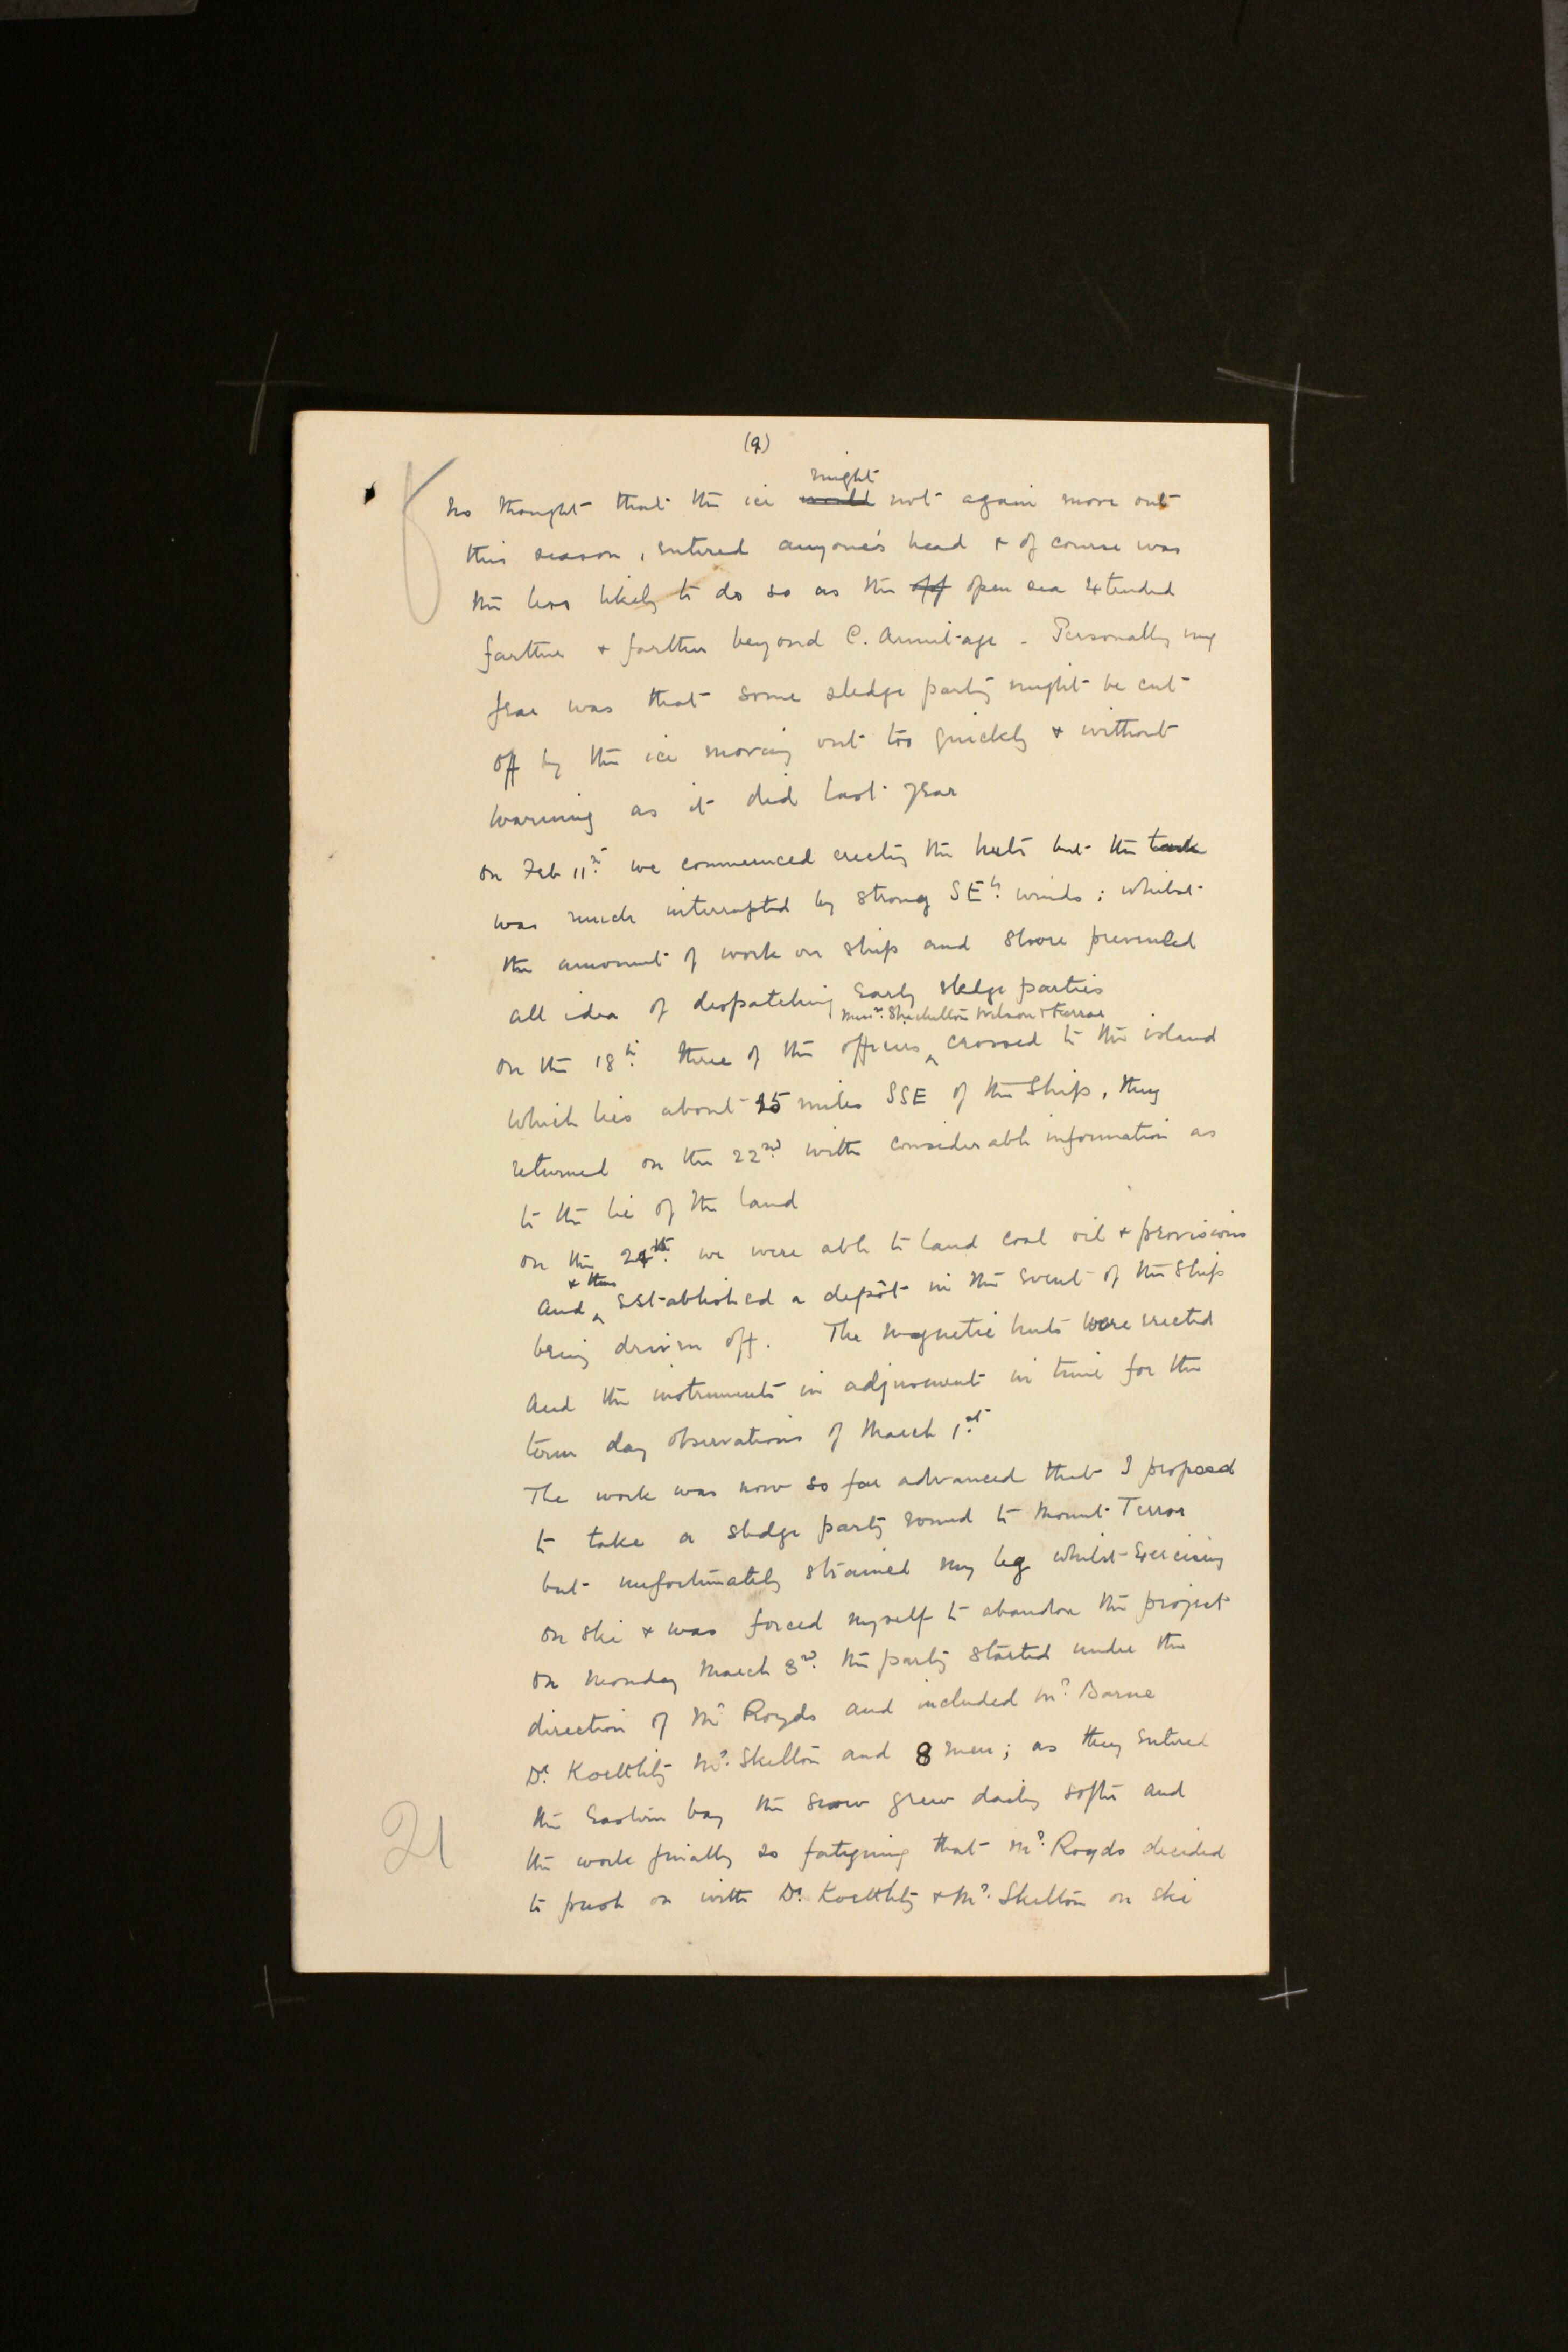 (9)
might
No thought that the ice would not again move out
this season, entered anyone's head & of course was
the less likely to do so as the off open sea extended
farther & farther beyond C. Armitage - Personally my
fear was that some sledge party might be cut
off by the ice moving out too quickly & without
warning as it did last year
On Feb 11th we commenced erecting the huts but the task
was much interrupted by strong SEly winds; whilst
the amount of work on ship and shore prevented
all idea of despatching early sledge parties
Messrs. Shackelton Wilson & Ferrar
On the 18th three of the officers ^ crossed to the island
which lies about 15 miles SSE of the Ship, they
returned on the 22nd with considerable information as
to the lie of the land
On the 24th we were able to land coal oil & provisions
& thus
And ^ established a depôt in the event of the Ship
being driven off. The magnetic huts were erected
And the instruments in adjustment in time for the
term day observations of March 1st
The work was now so far advanced that I proposed
to take a sledge party round to Mount Terror
but unfortunately strained my leg whilst exercising
on ski & was forced myself to abandon the project
On Monday March 3rd the party started under the
direction of Mr Royds and included Mr Barne
Dr Koettlitz Mr. Skelton and 8 men; as they entered
the Eastern bay the snow grew daily softer and
the work finally so fatiguing that Mr. Royds decided
to push on with Dr. Koettlitz & Mr. Skelton on ski
21